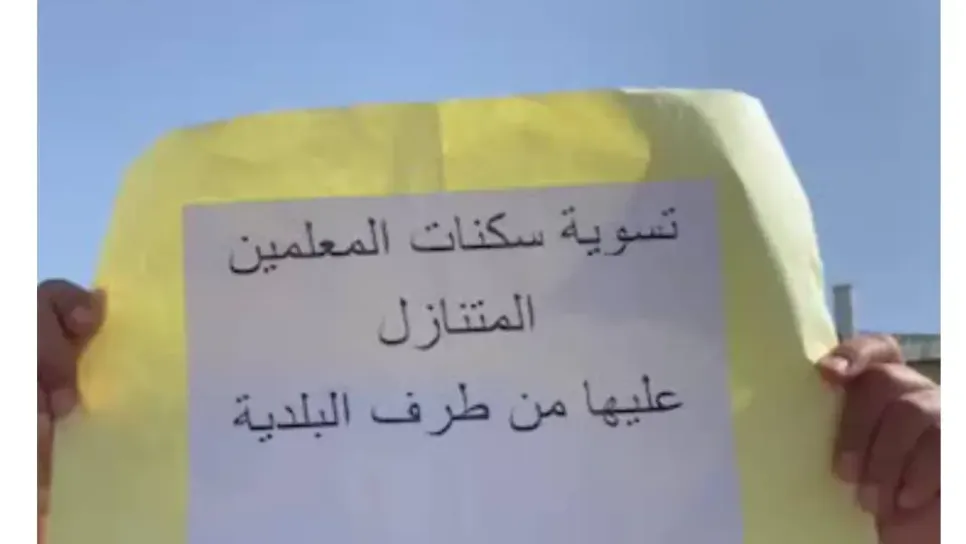 تسوية سكنات المعلمين
المتنازل
عليها من طرف البلدية